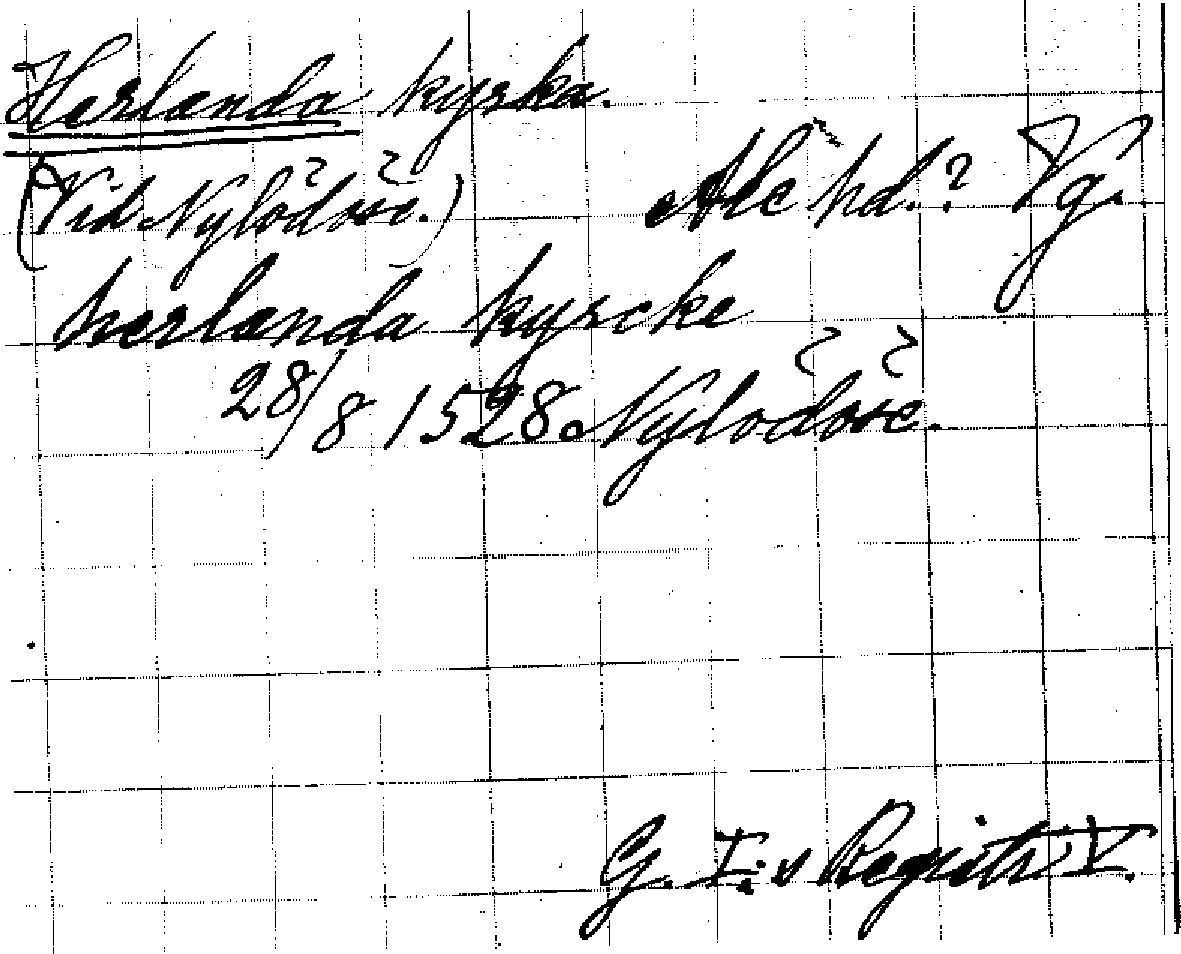 Herlanda kyrka.
(Vid Nylödöse.) Ale hd.? Vg.
herlanda kyrcke
28/8 1528. Nylödöse.
G. I:s Registr V.